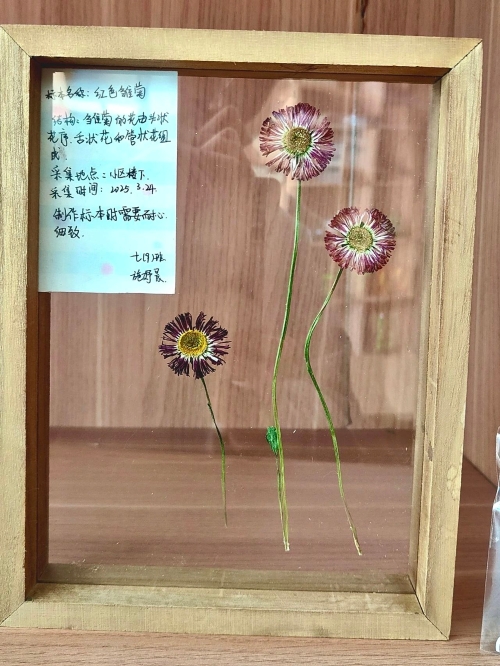 标本名称：红色雏菊
结构：雏菊的花为头状
花序，舌状花和管状花组
成。
采集地点：小区楼下.
采集时间：2025.3.24.
制作标本时需要耐心
细致.
七(9)班